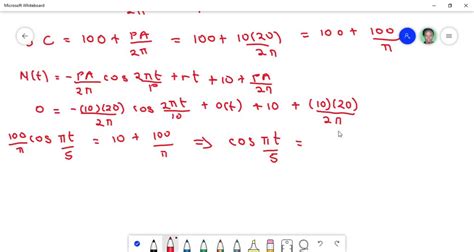 Microsoft Whiteboard
2π
C = 100 + PA/2π = 100 + 10(20)/2π = 100 + 100/π
N(t) = -PA/2π cos 2πt/P + rt + 10 + PA/2π
0 = -(10)(20)/2π cos 2πt/10 + 0(t) + 10 + (10)(20)/2π
100/π cos πt/5 = 10 + 100/π ⇒ cos πt/5 =